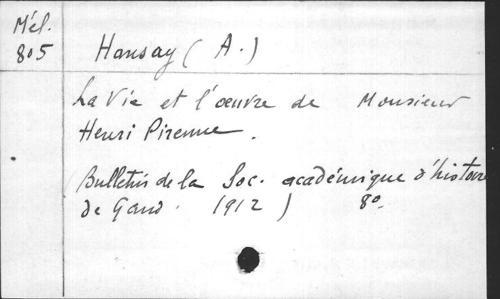 Mél.
805
Hansay (A.)
La Vie et l'œuvre de Monsieur
Henri Pirenne.
(Bulletin de la Soc. académique d'histoire
de Gand. 1912) 8o.